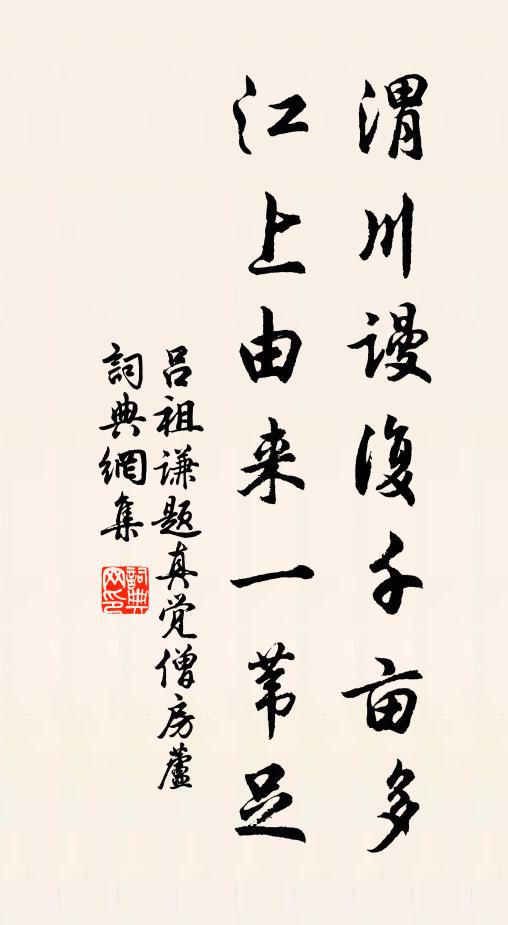 渭川谩復千亩多
江上由来一苇足
吕祖谦题真觉僧房蘆
詞典網集
詞典网印